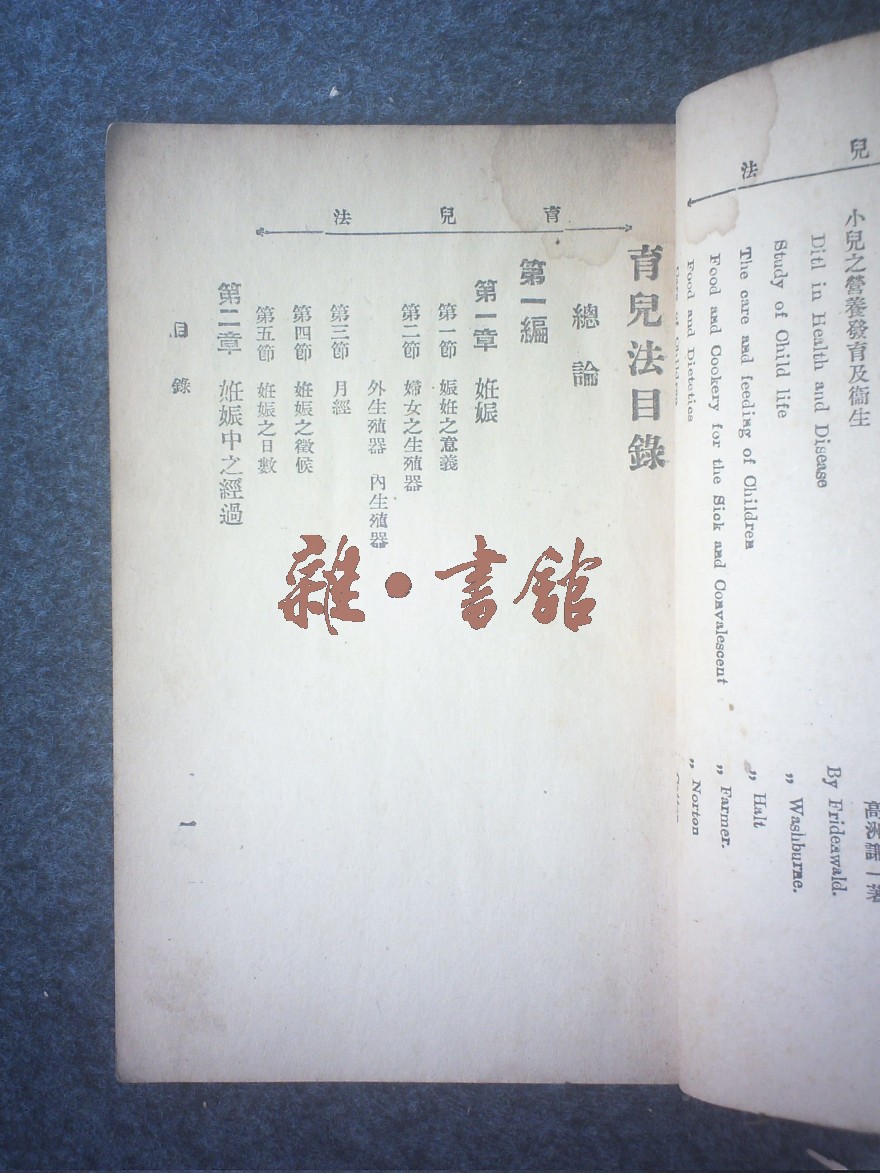 兒 法
小兒之營養發育及衞生
Ditl in Health and Disease By Fridenwald.
Study of Child life 〃 Washburne.
The care and feeding of Children 〃 Halt
Food and Cookery for the Sick and Convalescent 〃 Farmer.
Food and Dietetics 〃 Norton
Care of Children
育 兒 法
育兒法目錄
總論
第一編
第一章 妊娠
第一節 娠妊之意義
第二節 婦女之生殖器
外生殖器 內生殖器
第三節 月經
第四節 妊娠之徵候
第五節 妊娠之日數
第二章 妊娠中之經過
目錄
一
雜·書館